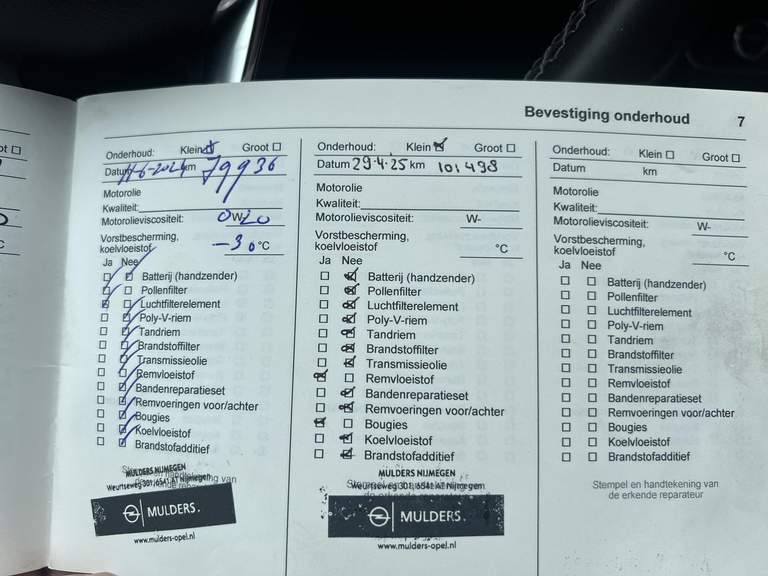 Bevestiging onderhoud 7
Onderhoud: Klein Groot
Datum 11-6-2024 km 79936
Motorolie
Kwaliteit:
Motorolieviscositeit: 0W-20
Vorstbescherming,
koelvloeistof -30 °C
Ja Nee
Batterij (handzender)
Pollenfilter
Luchtfilterelement
Poly-V-riem
Tandriem
Brandstoffilter
Transmissieolie
Remvloeistof
Bandenreparatieset
Remvoeringen voor/achter
Bougies
Koelvloeistof
Brandstofadditief
MULDERS NIJMEGEN
Weurtseweg 301, 6541 AT Nijmegen
MULDERS.
www.mulders-opel.nl
Onderhoud: Klein Groot
Datum 29.4.25 km 101498
Motorolie
Kwaliteit:
Motorolieviscositeit: W-
Vorstbescherming,
koelvloeistof °C
Ja Nee
Batterij (handzender)
Pollenfilter
Luchtfilterelement
Poly-V-riem
Tandriem
Brandstoffilter
Transmissieolie
Remvloeistof
Bandenreparatieset
Remvoeringen voor/achter
Bougies
Koelvloeistof
Brandstofadditief
MULDERS NIJMEGEN
Weurtseweg 301, 6541 AT Nijmegen
de erkende reparateur
MULDERS.
www.mulders-opel.nl
Onderhoud: Klein Groot
Datum km
Motorolie
Kwaliteit:
Motorolieviscositeit: W-
Vorstbescherming,
koelvloeistof °C
Ja Nee
Batterij (handzender)
Pollenfilter
Luchtfilterelement
Poly-V-riem
Tandriem
Brandstoffilter
Transmissieolie
Remvloeistof
Bandenreparatieset
Remvoeringen voor/achter
Bougies
Koelvloeistof
Brandstofadditief
Stempel en handtekening van
de erkende reparateur